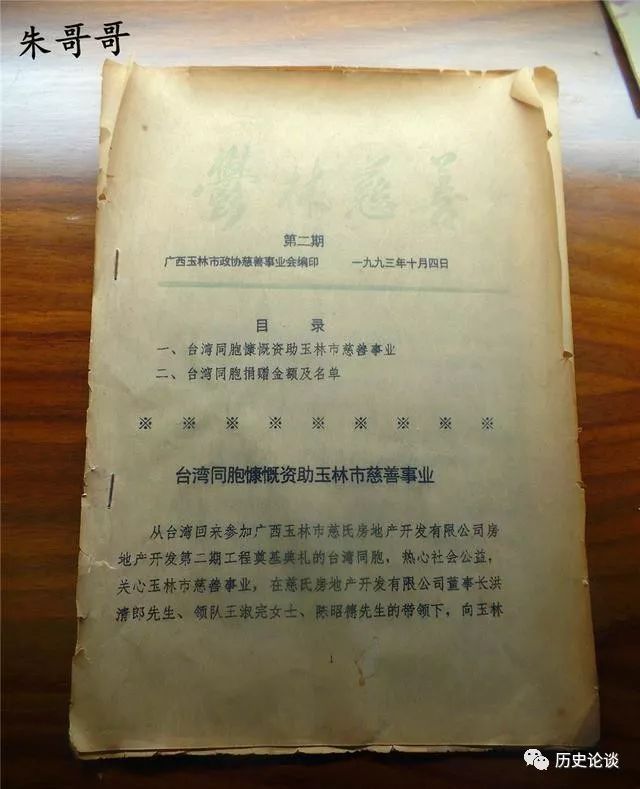 朱哥哥
鬱林慈善
第二期
广西玉林市政协慈善事业会编印 一九九三年十月四日
目 录
一、台湾同胞慷慨资助玉林市慈善事业
二、台湾同胞捐赠金额及名单
※ ※ ※ ※ ※ ※ ※ ※ ※
台湾同胞慷慨资助玉林市慈善事业
从台湾回来参加广西玉林市慈氏房地产开发有限公司房
地产开发第二期工程奠基典礼的台湾同胞，热心社会公益，
关心玉林市慈善事业，在慈氏房地产开发有限公司董事长洪
清郎先生、领队王淑完女士、陈昭德先生的带领下，向玉林
1
历史论谈